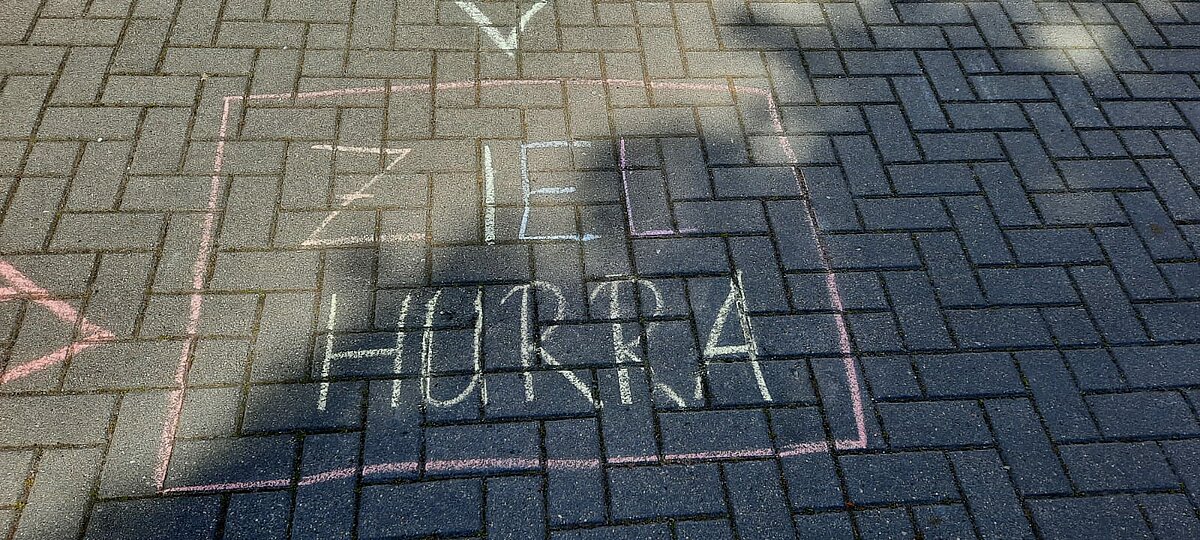 ZIEL
HURRA